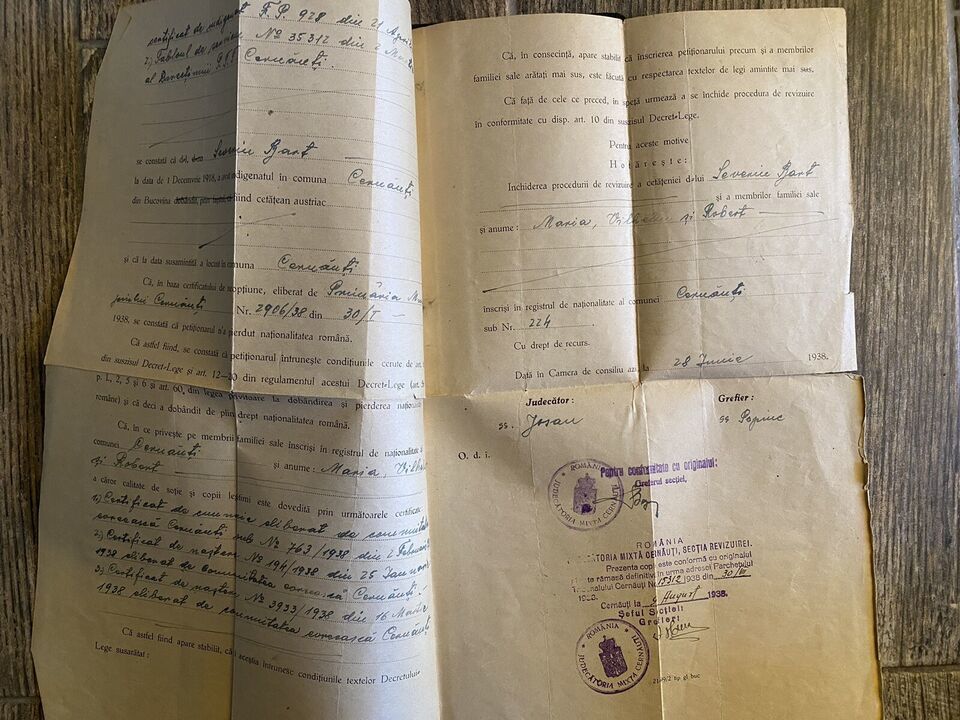 certificat de indigenat F. P. 928 din 21 April
2) Tabloul de No 35312 din 2
al Cernăuți.
se constată că dl. Severin Bart
la data de 1 Decemvrie 1918, a avut indigenatul în comuna Cernăuți
din Bucovina fiind cetățean austriac
și că la data susamintită a locuit în comuna Cernăuți
Că, în baza certificatului de neopțiune, eliberat de Primăria
Cernăuți Nr. 2906/38 din 30/I
1938, se constată că petiționarul n'a pierdut naționalitatea română.
Că astfel fiind, se constată că petiționarul întrunește condițiunile cerute de art.
din suszisul Decret-Lege și art. 12-20 din regulamentul acestui Decret-Lege (art. 56
p. 1, 2, 3 și 6 și art. 60, din legea privitoare la dobândirea și pierderea naționalit
române) și că deci a dobândit de plin drept naționalitatea română.
Că, în ce privește pe membrii familiei sale inscriși în registrul de naționalitate a
comunei Cernăuți și anume: Maria, Vilhelm
și Robert
a căror calitate de soție și copii legitimi este dovedită prin următoarele certificate:
1) Certificat de cununie eliberat de comunitatea
evreească Cernăuți sub No 763/1938 din 2 Februar
2) Certificat de naștere No 194/1938 din 25 Ianuarie
1938 eliberat de Comunitatea evreească Cernăuți
3) Certificat de naștere No 3933/1938 din 16 Martie
1938 eliberat de comunitatea evreească Cernăuți
Că astfel fiind apare stabilit, că și aceștia întrunesc condițiunile textelor Decretului-
Lege susarătat:
Că, în consecință, apare stabilit că înscrierea petiționarului precum și a membrilor
familiei sale arătați mai sus, este făcută cu respectarea textelor de legi amintite mai sus.
Că față de cele ce preced, în speță urmează a se închide procedura de revizuire
în conformitate cu disp. art. 10 din suszisul Decret-Lege.
Pentru aceste motive
Hotărește:
Închiderea procedurii de revizuire a cetățeniei d-lui Severin Bart
și a membrilor familiei sale
și anume: Maria, Vilhelm și Robert
inscriși în registrul de naționalitate al comunei Cernăuți
sub Nr. 224.
Cu drept de recurs.
Dată în Camera de consiliu azi la 28 Iunie 1938.
Judecător: Grefier:
ss. Josan ss Popiuc
O. d. i.
Pentru conformitate cu originalul:
Greferul secției,
ROMÂNIA
JUDECĂTORIA MIXTĂ CERNĂUȚI
ROMÂNIA
JUDECĂTORIA MIXTĂ CERNĂUȚI, SECȚIA REVIZUIREI.
Prezenta copie este conformă cu originalul
rămasă definitivă în urma adresei Parchetului
Tribunalului Cernăuți No 15312 1938 din 30/VII
1938.
Cernăuți la 9 August 1938.
Șeful Secției
Grefier
ROMÂNIA
JUDECĂTORIA MIXTĂ CERNĂUȚI
2149/2 tip gl buc